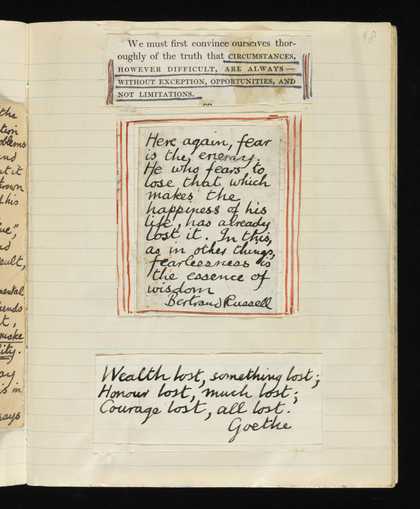 68
We must first convince ourselves thor-
oughly of the truth that CIRCUMSTANCES,
HOWEVER DIFFICULT, ARE ALWAYS—
WITHOUT EXCEPTION, OPPORTUNITIES, AND
NOT LIMITATIONS.
Here again, fear
is the enemy.
He who fears to
lose that which
makes the
happiness of his
life, has already
lost it. In this,
as in other things,
fearlessness is
the essence of
wisdom
Bertrand Russell
Wealth lost, something lost;
Honour lost, much lost;
Courage lost, all lost.
Goethe